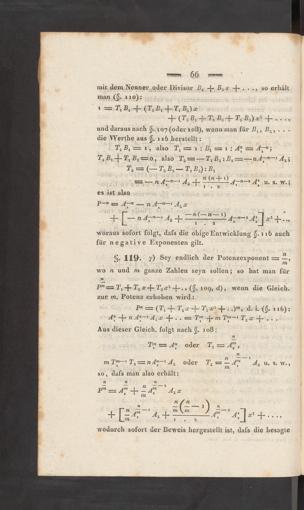 — 66 —
mit dem Nenner oder Divisor B₁ + B₂ x + ...., so erhält
man (§. 110):
1 = T₁ B₁ + (T₂ B₁ + T₁ B₂) x
+ (T₃ B₁ + T₂ B₂ + T₁ B₃) x² + ....,
und daraus nach §. 107 (oder 108), wenn man für B₁, B₂, ...
die Werthe aus §. 116 herstellt:
T₁ B₁ = 1, also T₁ = 1 : B₁ = 1 : A₁ⁿ = A₁⁻ⁿ;
T₂ B₁ + T₁ B₂ = 0, also T₂ = — T₁ B₂ : B₁ = — n A₁⁻ⁿ⁻¹ A₂;
T₃ = (— T₂ B₂ — T₁ B₃) : B₁
es ist also
P⁻ⁿ = A₁⁻ⁿ — n A₁⁻ⁿ⁻¹ A₂ x
woraus sofort folgt, dass die obige Entwicklung §. 116 auch
für negative Exponenten gilt.
§. 119. 7) Sey endlich der Potenzexponent = n/m,
wo n und m ganze Zahlen seyn sollen; so hat man für
P^(n/m) = T₁ + T₂ x + T₃ x² + .. (§. 109, d), wenn die Gleich.
zur m. Potenz erhoben wird:
Pⁿ = (T₁ + T₂ x + T₃ x² + ..)ᵐ, d. i. (§. 116):
A₁ⁿ + n A₁ⁿ⁻¹ A₂ x + .. = T₁ᵐ + m T₁ᵐ⁻¹ T₂ x + ...
Aus dieser Gleich. folgt nach §. 108:
T₁ᵐ = A₁ⁿ oder T₁ = A₁^(n/m),
m T₁ᵐ⁻¹ T₂ = n A₁ⁿ⁻¹ A₂ oder T₂ = n/m A₁^(n/m − 1) A₂ u. s. w.,
so, dass man also erhält:
P^(n/m) = A₁^(n/m) + n/m A₁^(n/m − 1) A₂ x
wodurch sofort der Beweis hergestellt ist, dass die besagte